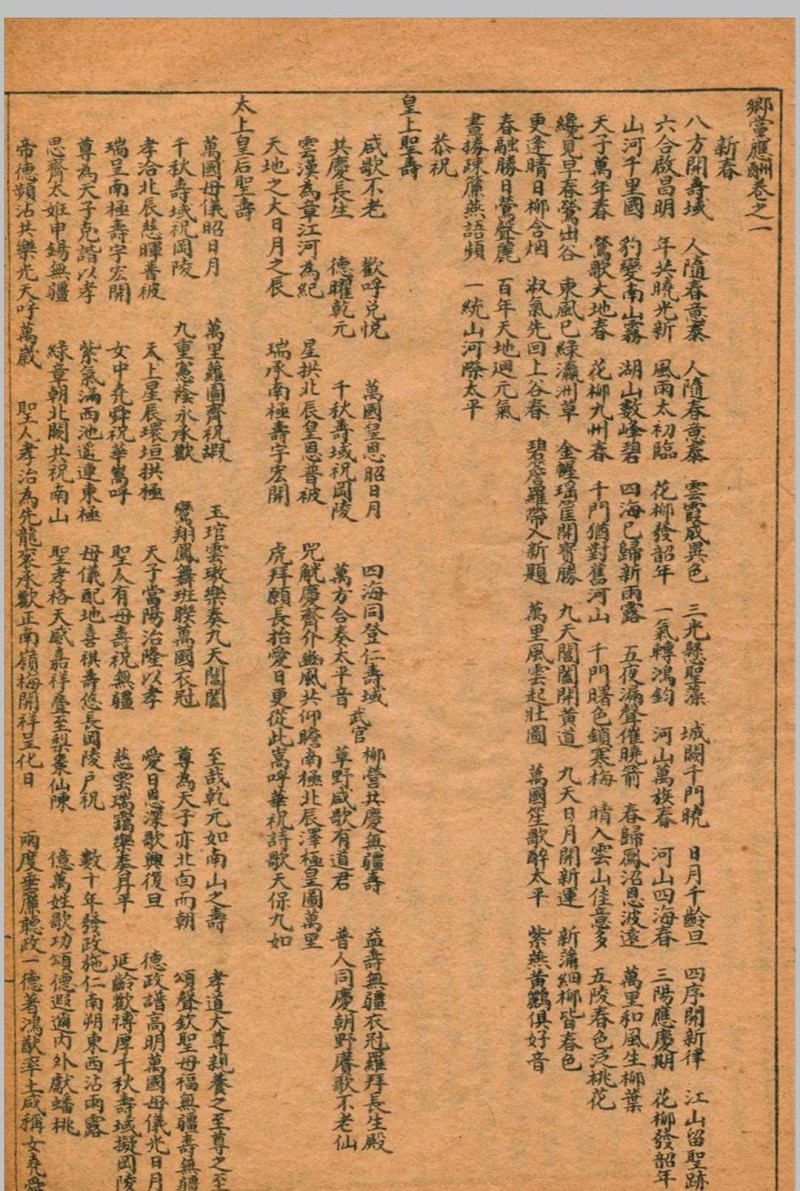 鄉黨應酬卷之一
新春
八方開壽域　人隨春意泰　人隨春意泰　雲霞成異色　三光懸聖藻　城闕千門曉　日月千齡旦　四序開新律　江山留聖跡
六合啟昌明　年共曉光新　風雨太初臨　花柳發韶年　一氣轉鴻鈞　河山萬族春　河山四海春　三陽應慶期　花柳發韶年
山河千里國　豹變南山霧　湖山數峰碧　四海已歸新雨露　五夜漏聲催曉箭　春歸鳳沼恩波遠　萬里和風生柳葉
天子萬年春　鶯歌大地春　花柳九州春　千門猶對舊河山　千門曙色鎖寒梅　晴入雲山佳意多　五陵春色泛桃花
纔覺早春鶯出谷　東風已綠瀛洲草　金輕瑤筐開寶勝　九天閶闔開黃道　九天日月開新運　新蒲細柳皆春色
更逢晴日柳含烟　淑氣先回上谷春　碧簷羅帶入新題　萬里風雲起壯圖　萬國笙歌醉太平　紫燕黃鸝俱好音
春融勝日鶯聲麗　百年天地迴元氣
晝擾疎簾燕語頻　一統山河際太平
恭祝
皇上聖壽
咸歌不老　歡呼兌悅　萬國皇恩昭日月　四海同登仁壽域　武官　柳營共慶無疆壽　益壽無疆衣冠羅拜長生殿
共慶長生　德曜乾元　千秋壽域祝岡陵　萬方合奏太平音　草野咸歌有道君　普人同慶朝野賡歌不老仙
雲漢為章江河為紀　星拱北辰皇恩普被　兕觥慶齊外豳風共仰瞻南極北辰澤極皇圖萬里
天地之大日月之辰　瑞承南極壽宇宏開　虎拜願長抬愛日更從此嵩呼華祝詩歌天保九如
太上皇后聖壽
萬國母儀昭日月　萬里蘿圖齊祝嘏　玉琯雲璈樂奏九天閶闔　至哉乾元如南山之壽　孝道大尊親養之至尊之至
千秋壽域祝岡陵　九重憲蔭永承歡　鸞翔鳳舞班聯萬國衣冠　尊為天子亦北面而朝　頌聲欽聖母福無疆壽無疆
孝治北辰慈暉普被　天上星辰環垣拱極　天子當陽治隆以孝　愛日思深歌興復旦　德政譜高明萬國母儀光日月
瑞呈南極壽宇宏開　女中堯舜祝華嵩呼　聖人有母壽祝無疆　慈雲瑞靄樂奏昇平　延齡歡博厚千秋壽域擬岡陵
尊為天子克諧以孝　紫氣滿西池遙連東極　母儀配地喜祺壽悠長岡陵戶祝　數十年發政施仁南朔東西沾雨露
思齊太姙申錫無疆　綠章朝北闕共祝南山　聖孝格天感嘉祥疊至梨棗仙陳　億萬姓歌功頌德遐邇內外獻蟠桃
帝德頻沾共樂光天呼萬歲　聖人孝治為先龍袞承歡正南嶺梅開祥呈化日　兩度垂簾聽政一德著鴻猷率土咸稱女堯舜